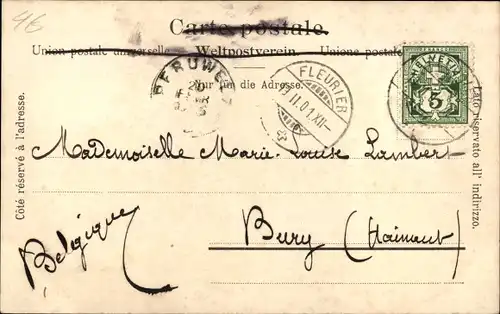 46
Carte postale.
Union postale universelle. Weltpostverein. Unione postale
Nur für die Adresse.
PERUWE
FLEURIER
II.01.XII
HELVETIA
FRANCO
5
Côté réservé à l'adresse.
Lato riservato all' indirizzo.
Mademoiselle Marie-Louise Lambert
Bury (Hainaut)
Belgique